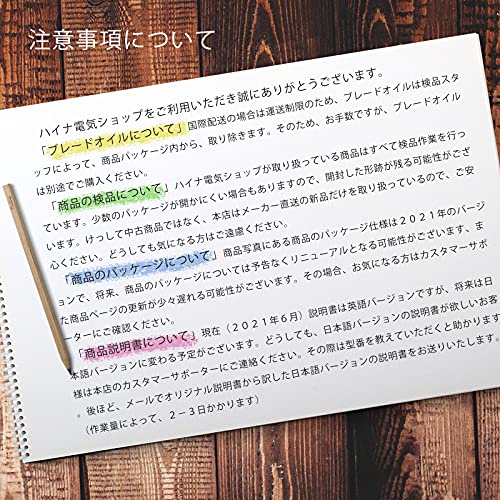 注意事項について
ハイナ電気ショップをご利用いただき誠にありがとうございます。
「ブレードオイルについて」国際配送の場合は運送制限のため、ブレードオイルは検品スタ
ッフによって、商品パッケージ内から、取り除きます。そのため、お手数ですが、ブレードオイル
は別途でご購入ください。
「商品の検品について」ハイナ電気ショップが取り扱っている商品はすべて検品作業を行っ
ています。少数のパッケージが開かにくい場合もありますので、開封した形跡が残る可能性がござ
います。けっして中古商品ではなく、本店はメーカー直送の新品だけを取り扱っているので、ご安
心ください。どうしても気になる方はご遠慮ください。
「商品のパッケージについて」商品写真にある商品のパッケージ仕様は２０２１年のバージ
ョンで、将来、商品のパッケージについては予告なくリニューアルとなる可能性がございます、ま
た商品ページの更新が少々遅れる可能性がございます。その場合、お気になる方はカスタマーサポ
ーターにご確認ください。
「商品説明書について」現在（２０２１年６月）説明書は英語バージョンですが、将来は日
本語バージョンに変わる予定がございます。どうしても、日本語バージョンの説明書が欲しいお客
様は本店のカスタマーサポーターにご連絡ください。その際は型番を教えていただくと助かります
。後ほど、メールでオリジナル説明書から訳した日本語バージョンの説明書をお送りいたします。
（作業量によって、２－３日かかります）